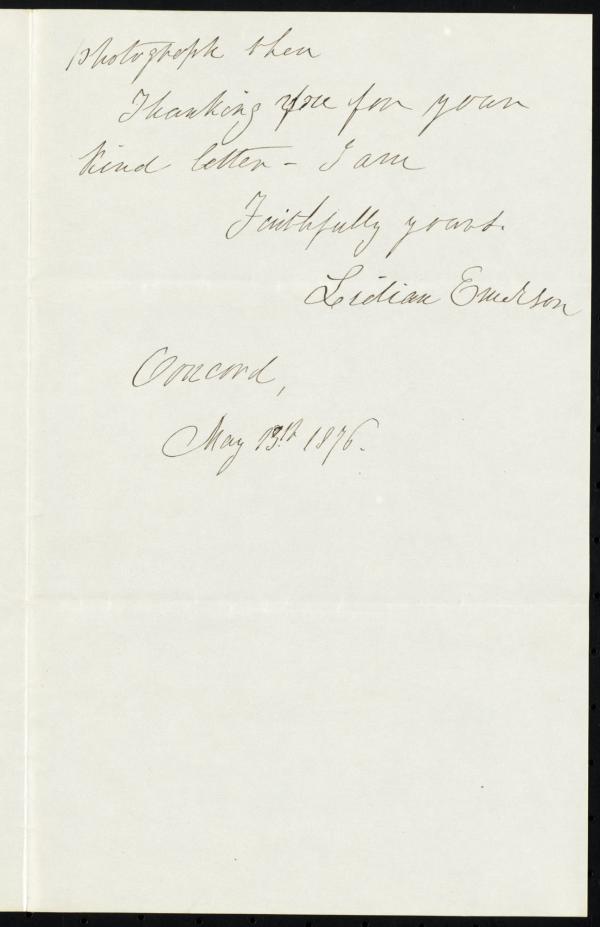 photograph then
Thanking you for your
kind letter - I am
Faithfully yours.
Lidian Emerson
Concord,
May 13th 1876.